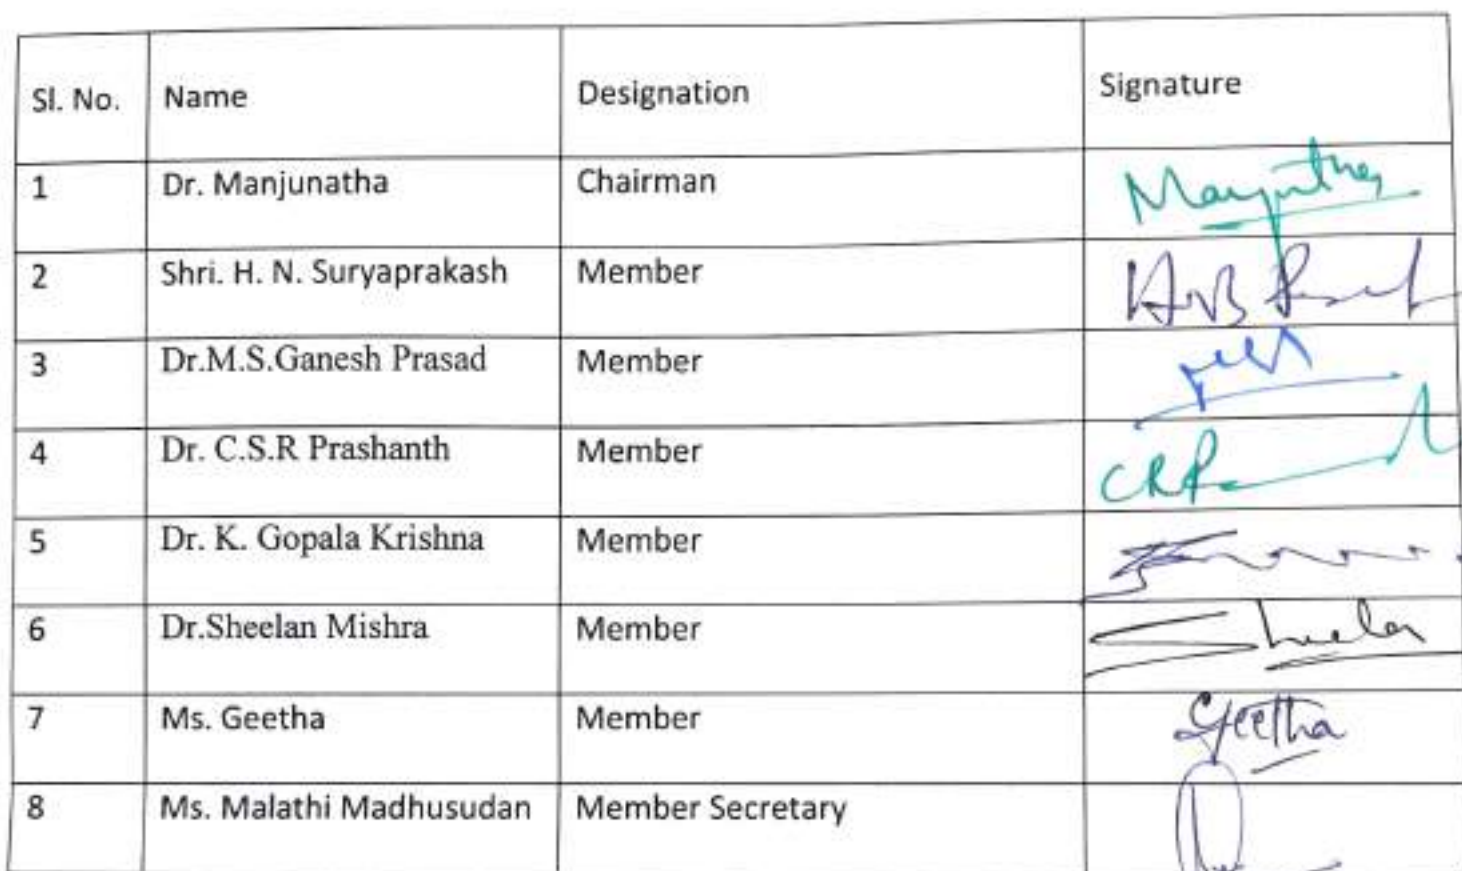 Sl. No. Name Designation Signature
1 Dr. Manjunatha Chairman
2 Shri. H. N. Suryaprakash Member
3 Dr.M.S.Ganesh Prasad Member
4 Dr. C.S.R Prashanth Member
5 Dr. K. Gopala Krishna Member
6 Dr.Sheelan Mishra Member
7 Ms. Geetha Member Geetha
8 Ms. Malathi Madhusudan Member Secretary